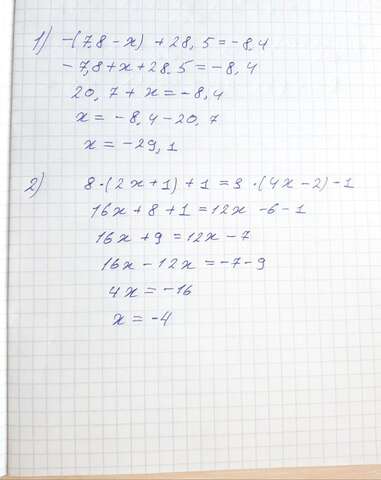 1) -(7,8 - x) + 28,5 = -8,4
-7,8 + x + 28,5 = -8,4
20,7 + x = -8,4
x = -8,4 - 20,7
x = -29,1
2) 8·(2x+1)+1=3·(4x-2)-1
16x+8+1=12x-6-1
16x+9=12x-7
16x-12x=-7-9
4x=-16
x=-4